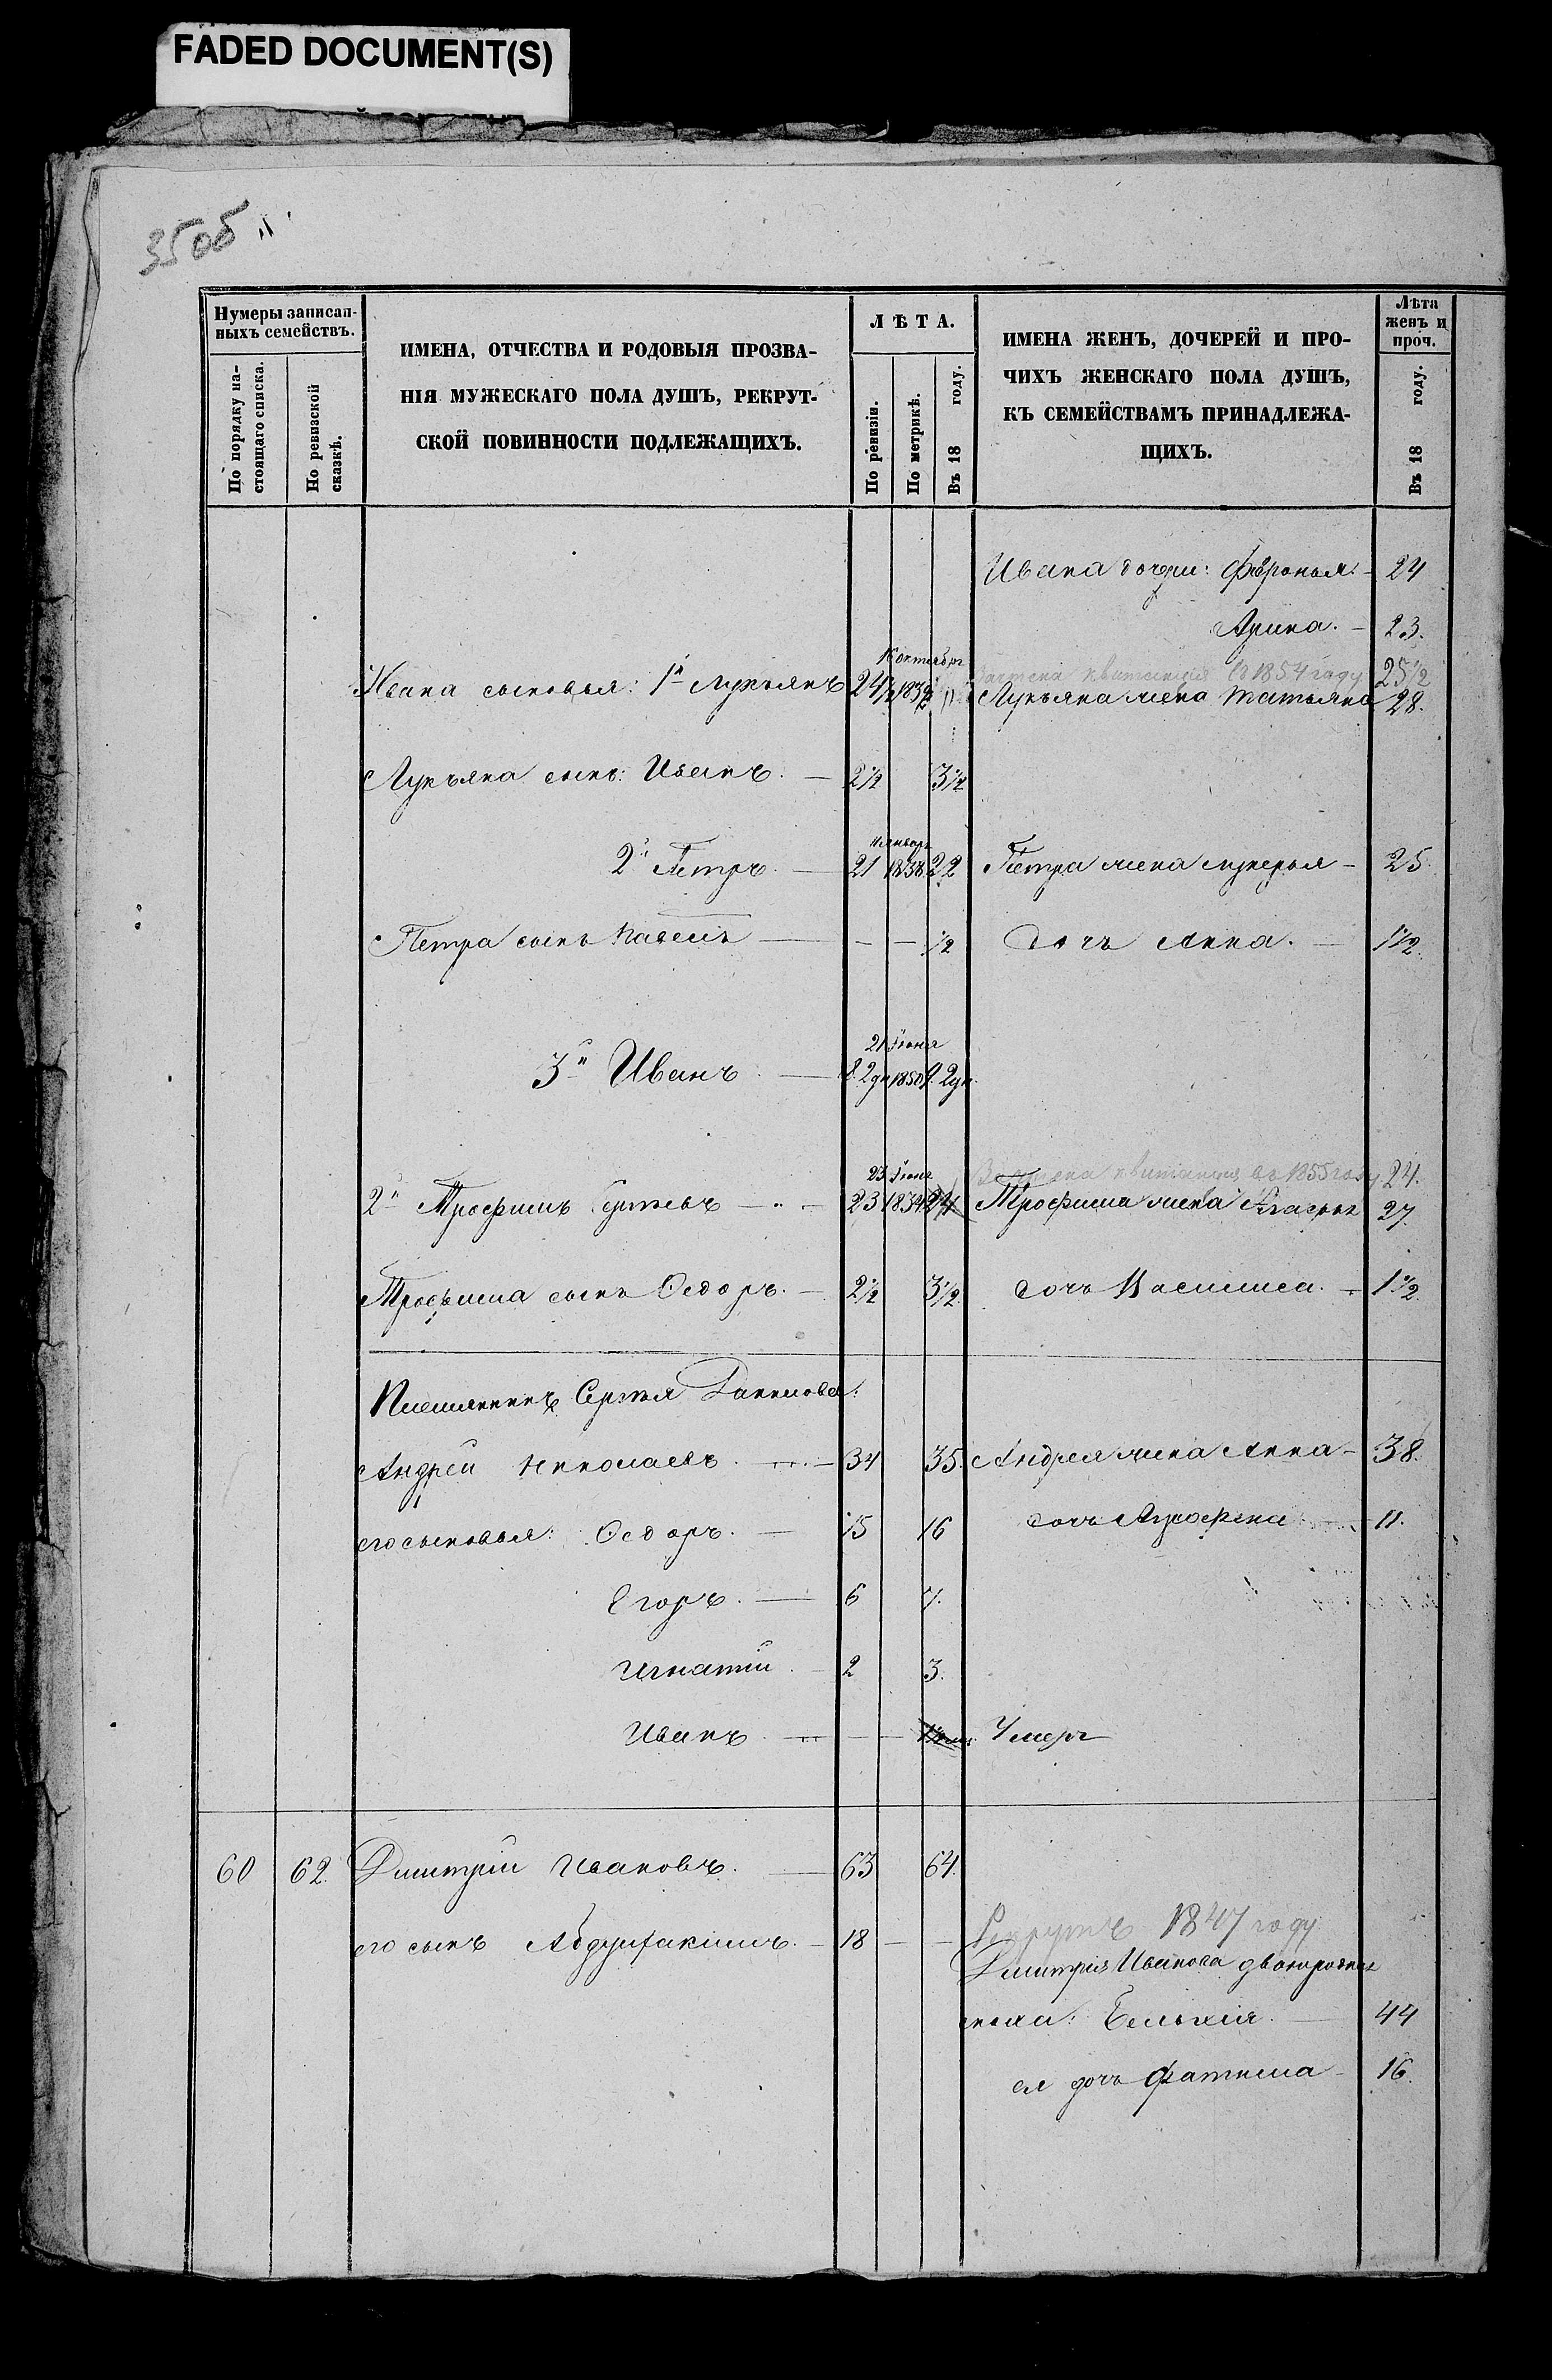 FADED DOCUMENT(S)
35об
Нумеры записан-
ныхъ семействъ.
По порядку на-
стоящаго списка.
По ревизской
сказкѣ.
ИМЕНА, ОТЧЕСТВА И РОДОВЫЯ ПРОЗВА-
НІЯ МУЖЕСКАГО ПОЛА ДУШЪ, РЕКРУТ-
СКОЙ ПОВИННОСТИ ПОДЛЕЖАЩИХЪ.
ЛѢТА.
По ревизіи.
По метрикѣ.
Въ 18 году.
ИМЕНА ЖЕНЪ, ДОЧЕРЕЙ И ПРО-
ЧИХЪ ЖЕНСКАГО ПОЛА ДУШЪ,
КЪ СЕМЕЙСТВАМЪ ПРИНАДЛЕЖА-
ЩИХЪ.
Лѣта
женъ и
проч.
Въ 18 году.
Ивана дочери: Февронья - 24
Арина. - 23.
квитанція въ 1854 году 25 1/2
Ивана сыновья: 1й Лукьянъ 24 1/2 Лукьяна жена Татьяна 28.
Лукьяна сынъ: Иванъ. - 2 1/2 3 1/2
января
2й Петръ. - 21 1838 22 Петра жена Лукерья - 25.
Петра сынъ Павелъ - - - 1/2 дочь Анна. - 1 1/2.
21 Іюня
3й Иванъ - 1850
23 квитанція въ 1855 году 24.
2й Трофимъ Сергѣевъ - 23 1834 24 Трофима жена 27.
Трофима сынъ Ѳедоръ. - 2 1/2 3 1/2. дочь Василиса. - 1 1/2.
Племянникъ Сергѣя Данилова:
Андрей Николаевъ - 34 35. Андрея жена Анна - 38.
его сыновья: Ѳедоръ. - 15 16 дочь Аграфена - 11.
Егоръ. - 6 7.
Игнатій - 2 3.
Иванъ - - - Умеръ
60 62. Дмитрій Ивановъ. - 63 64.
его сынъ - 18 - - Рекрутъ 1847 году
Дмитрія Иванова двоюродная
сноха: - 44
ея дочь Фатима - 16.